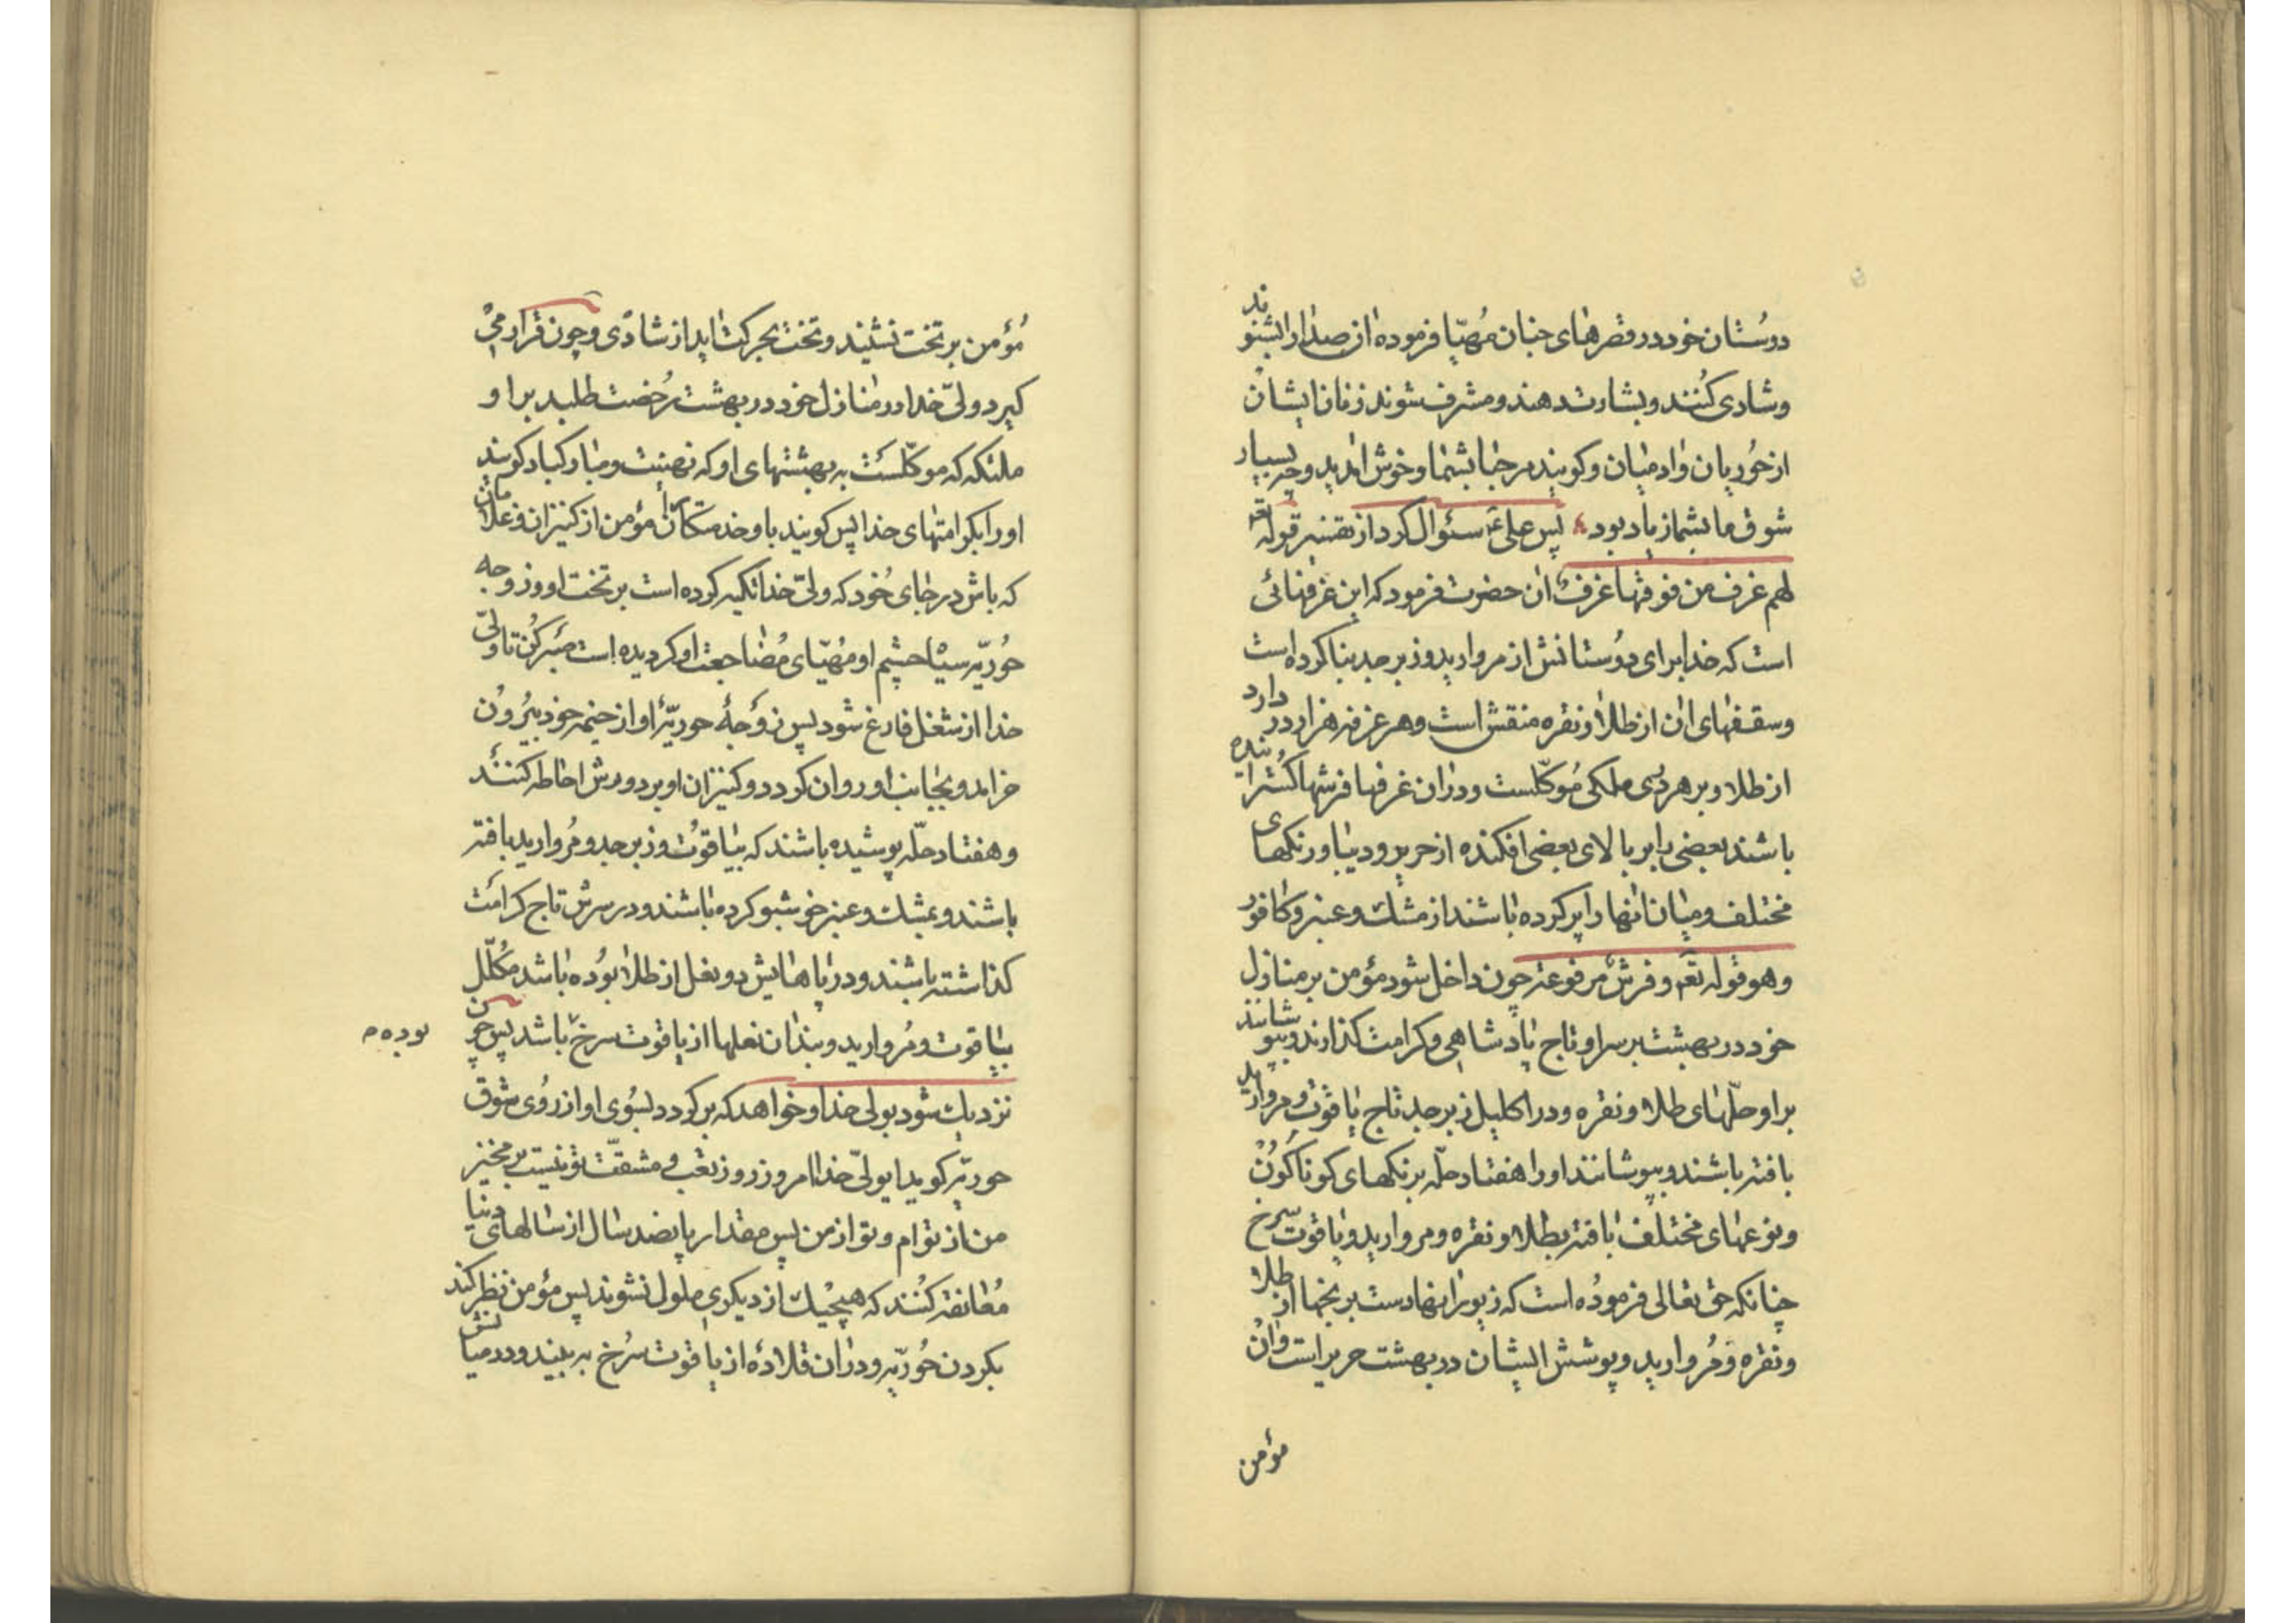 دوستان خود در قصرهای جنان مهیا فرموده ان صدا را بشنوند
و شادی کنند و بشارت دهند و مشرف شوند زنان ایشان
از حوریان و ادمیان و کویند مرحبا بشما و خوش امدید و چه بسیار
شوق ما بشما زیاد بود پس علی ع سئوال کرد از تفسیر قوله تع
لهم غرف من فوقها غرف ان حضرت فرمود که این غرفهائی
است که خدا برای دوستانش از مروارید و زبرجد بنا کرده است
و سقفهای ان از طلا و نقره منقش است و هر غرفه هزار در دارد
از طلا و بر هر دری ملکی موکلست و در ان غرفها فرشها کسترانیده
باشند بعضی را بر بالای بعضی افکنده از حریر و دیبا و رنکهای
مختلف و میان انها را پر کرده باشند از مشک و عنبر و کافور
و هو قوله تع و فرش مرفوعة چون داخل شود مؤمن بر منازل
خود در بهشت بر سر او تاج پادشاهی و کرامت کذارند و بپوشانند
بر او حلهای طلا و نقره و در اکلیل زبرجد تاج یاقوت و مروارید
بافته باشند و بپوشانند او را هفتاد حله برنکهای کوناکون
و نوعهای مختلف بافته بطلا و نقره و مروارید و یاقوت سرخ
چنانکه حق تعالی فرموده است که زیور اینها دست برنجها از طلا
و نقره و مروارید و پوشش ایشان در بهشت حریر است و ان
مؤمن
مؤمن بر تخت نشیند و تخت بحرکت اید از شادی و چون قرار می
کیرد ولی خدا در منازل خود در بهشت رخصت طلبد بر او
ملئکه که موکلست به بهشتهای او که تهنیت و مبارکباد کویند
او را بکرامتهای خدا پس کویند با و خدمتکاران مؤمن از کنیزان و غلامان
که باش در جای خود که ولی خدا تکیه کرده است بر تخت او و زوجه
حوریه سیاه چشم او مهیای مضاجعت او کردیده است صبر کن تا ولی
خدا از شغل فارغ شود پس زوجهٔ حوریهٔ او از خیمه خود بیرون
خرامد و بجانب او روان کردد و کنیزان او بر دورش احاطه کنند
و هفتاد حله پوشیده باشند که بیاقوت و زبرجد و مروارید بافته
باشند و بمشک و عنبر خوشبو کرده باشند و در سرش تاج کرامت
کذاشته باشند و در پاهایش دو نعل از طلا بوده باشد مکلل
بیاقوت و مروارید و بند ان نعلها از یاقوت سرخ باشد پس چون
بوده م
نزدیک شود بولی خدا و خواهد که بر کردد بسوی او از روی شوق
حوریه کوید ایولی خدا امروز روز تعب و مشقت تو نیست بر مخیز
من از تو ام و تو از من پس مقدار پانصد سال از سالهای دنیا
معانقه کنند که هیچیک از دیکری ملول نشوند پس مؤمن نظر کند
بکردن حوریه و در ان قلادهٔ از یاقوت سرخ به بیند و در میانش